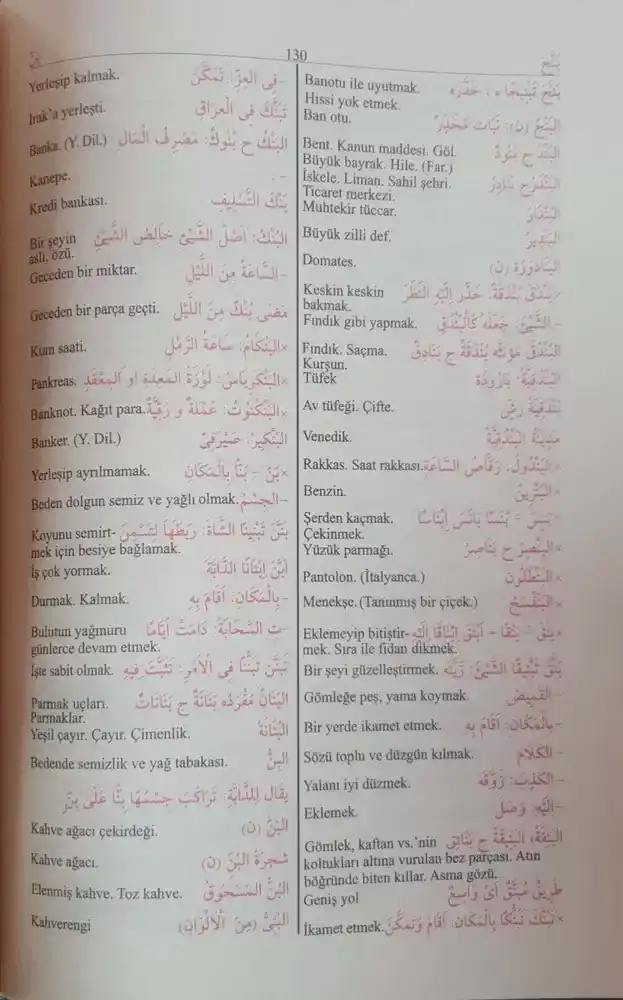 130
بَنْج
Banotu ile uyutmak. بَنَّجَ تَبْنِيجًا ه : خَدَّرَه
Hissi yok etmek.
Ban otu. البَنْجُ (ن): نَبَات مُخَدِّرٌ
Bent. Kanun maddesi. Göl. البَنْد ج بُنُودٌ
Büyük bayrak. Hile. (Far.)
İskele. Liman. Sahil şehri. البَنْدَرُ ج بَنَادِرُ
Ticaret merkezi.
Muhtekir tüccar. البُنْدَارُ
Büyük zilli def. البَنْدِيرُ
Domates. البَنَادُورَة (ن)
Keskin keskin بَنْدَقَ بَنْدَقَةً: حَدَّرَ إِلَيْهِ النَّظَرَ
bakmak.
Fındık gibi yapmak. – الشَّيْئَ: جَعَلَهُ كَالْبُنْدُقِ
Fındık. Saçma. البُنْدُقُ مو ثه بُنْدُقَةٌ ج بَنَادِقُ
Kurşun.
Tüfek البُنْدُقِيَّةُ: بَارُودَة
Av tüfeği. Çifte. بُنْدُقِيَّةُ رَشٍّ
Venedik. مَدِينَةُ الْبُنْدُقِيَّةِ
Rakkas. Saat rakkası. البَنْدُولُ: رَقَّاصُ السَّاعَةِ
Benzin. البَنْزِينُ
Şerden kaçmak.
Çekinmek.
Yüzük parmağı. البِنْصِرُ ج بَنَاصِرُ
Pantolon. (İtalyanca.) البَنْطَلُون
Menekşe. (Tanınmış bir çiçek.) البَنَفْسَجُ
Eklemeyip bitiştir-
mek. Sıra ile fidan dikmek.
Bir şeyi güzelleştirmek. بَنَّقَ تَبْنِيقًا الشَّيْئَ: زَيَّنَه
Gömleğe peş, yama koymak. – القَمِيصَ
Bir yerde ikamet etmek. – بِالْمَكَانِ: أَقَامَ بِهِ
Sözü toplu ve düzgün kılmak. – الكَلَامَ
Yalanı iyi düzmek. – الكَذِبَ: زَوَّقَه
Eklemek. – إِلَيْهِ: وَصَلَ
Gömlek, kaftan vs.'nin البَنَقَةُ، البَنِيقَةُ ج بَنَائِق
koltukları altına vurulan bez parçası. Atın
böğründe biten kıllar. Asma gözü.
Geniş yol طَرِيقٌ مُبَنَّقٌ أَيْ وَاسِعٌ
İkamet etmek. تَبَنَّكَ تَبَنُّكًا بِالْمَكَانِ: أَقَامَ وَتَمَكَّنَ
Yerleşip kalmak. – فِي الْعِزِّ: تَمَكَّنَ
Irak'a yerleşti. تَبَنَّكَ فِي الْعِرَاقِ
Banka. (Y. Dil.) البَنْكُ ج بُنُوكٌ: مَصْرِفُ الْمَال
Kanepe. – :
Kredi bankası. بَنْكُ التَّسْلِيفِ
Bir şeyin البُنْكُ: اَصْلُ الشَّيْئِ خَالِصُ الشَّيْئِ
aslı, özü.
Geceden bir miktar. – السَّاعَةُ مِنَ اللَّيْلِ
Geceden bir parça geçti. مَضَى بُنْكٌ مِنَ اللَّيْلِ
Kum saati. ×البَنْكَامُ: سَاعَةُ الرَّمْلِ
Pankreas. ×البَنْكِرِيَاسُ: لَوْزَةُ الْمَعِدَةِ او الْمَعْقَد
Banknot. Kağıt para. ×البَنْكْنُوتُ: عُمْلَةٌ وَرَقِيَّةٌ
Banker. (Y. Dil.) البَنْكِيرُ: صَيْرَفِيٌّ
Yerleşip ayrılmamak. ×بَنَّ – بَنًّا بِالْمَكَانِ
Beden dolgun semiz ve yağlı olmak. – الْجِسْمُ
Koyunu semirt- بَنَّنَ تَبْنِينًا الشَّاةَ: رَبَطَهَا لِتَسْمَنَ
mek için besiye bağlamak.
İş çok yormak. أَبَنَّ إِبْنَانًا الدَّابَّةَ
Durmak. Kalmak. – بِالْمَكَانِ: أَقَامَ بِهِ
Bulutun yağmuru – ت السَّحَابَةُ: دَامَتْ أَيَّامًا
günlerce devam etmek.
İşte sabit olmak. تَبَنَّنَ تَبَنُّنًا فِي الْأَمْرِ: تَثَبَّتَ فِيهِ
Parmak uçları. البَنَانُ مُفْرَدُه بَنَانَةٌ ج بَنَانَاتٌ
Parmaklar.
Yeşil çayır. Çayır. Çimenlik. البُنَانَةُ
Bedende semizlik ve yağ tabakası. البِنُّ
يقَال لِلدَّابَّةِ: تَرَاكَبَ جِسْمُهَا بِنًّا عَلَى بِنٍّ
Kahve ağacı çekirdeği. البُنُّ (ن)
Kahve ağacı. شَجَرَةُ الْبُنِّ (ن)
Elenmiş kahve. Toz kahve. البُنُّ الْمَسْحُوقُ
Kahverengi البُنِّيُّ (مِنَ الْاَلْوَانِ)